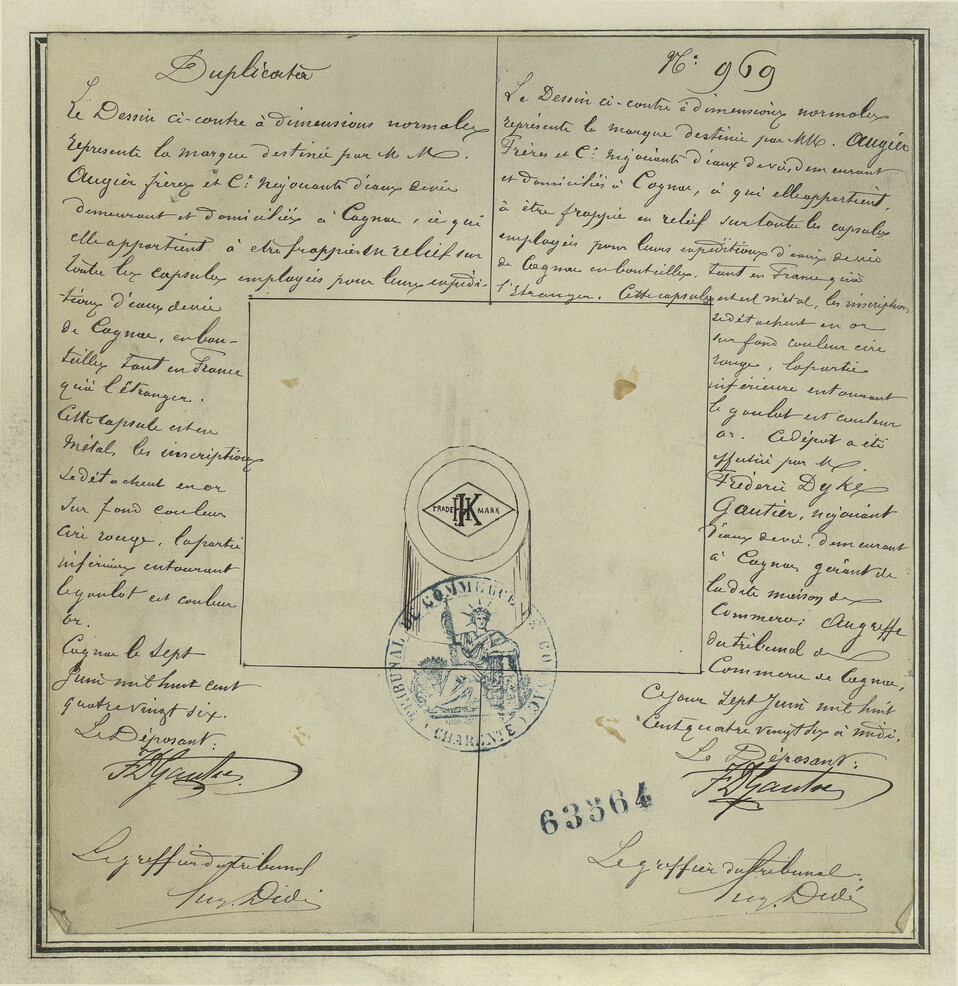 Duplicata
Le Dessin ci-contre à dimensions normales
représente la marque destinée par M M.
Augier frères et Cie négociants d'eaux de vie
demeurant et domiciliés à Cognac, à qui
elle appartient, à être frappée en relief sur
toutes les capsules employées pour leurs expédi-
tions d'eaux de vie
de Cognac, en bou-
teilles tant en France
qu'à l'étranger.
Cette capsule est en
métal, les inscriptions
se détachent en or
sur fond couleur
cire rouge, la partie
inférieure entourant
le goulot est couleur
or.
Cognac le sept
Juin mil huit cent
quatre vingt six.
Le Déposant:
F D Gautier
Le greffier du tribunal
Eug. Didié
No 969
Le Dessin ci-contre à dimensions normales
représente la marque destinée par MM. Augier
Frères et Cie négociants d'eaux de vie, demeurant
et domiciliés à Cognac, à qui elle appartient,
à être frappée en relief sur toutes les capsules
employées pour leurs expéditions d'eaux de vie
de Cognac en bouteilles, tant en France qu'à
l'étranger. Cette capsule est en métal, les inscriptions
se détachent en or
sur fond couleur cire
rouge, la partie
inférieure entourant
le goulot est couleur
or. Ce dépôt a été
effectué par M.
Fréderic Dyke
Gautier, négociant
d'eaux de vie, demeurant
à Cognac, gérant de
la dite maison de
Commerce; Au greffe
du tribunal de
Commerce de Cognac,
Ce jour sept Juin mil huit
Cent quatre vingt six à midi.
Le Déposant:
F D Gautier
Le greffier du tribunal:
Eug. Didié
TRADE HK MARK
TRIBUNAL DE COMMERCE DE COGNAC
(CHARENTE)
63564